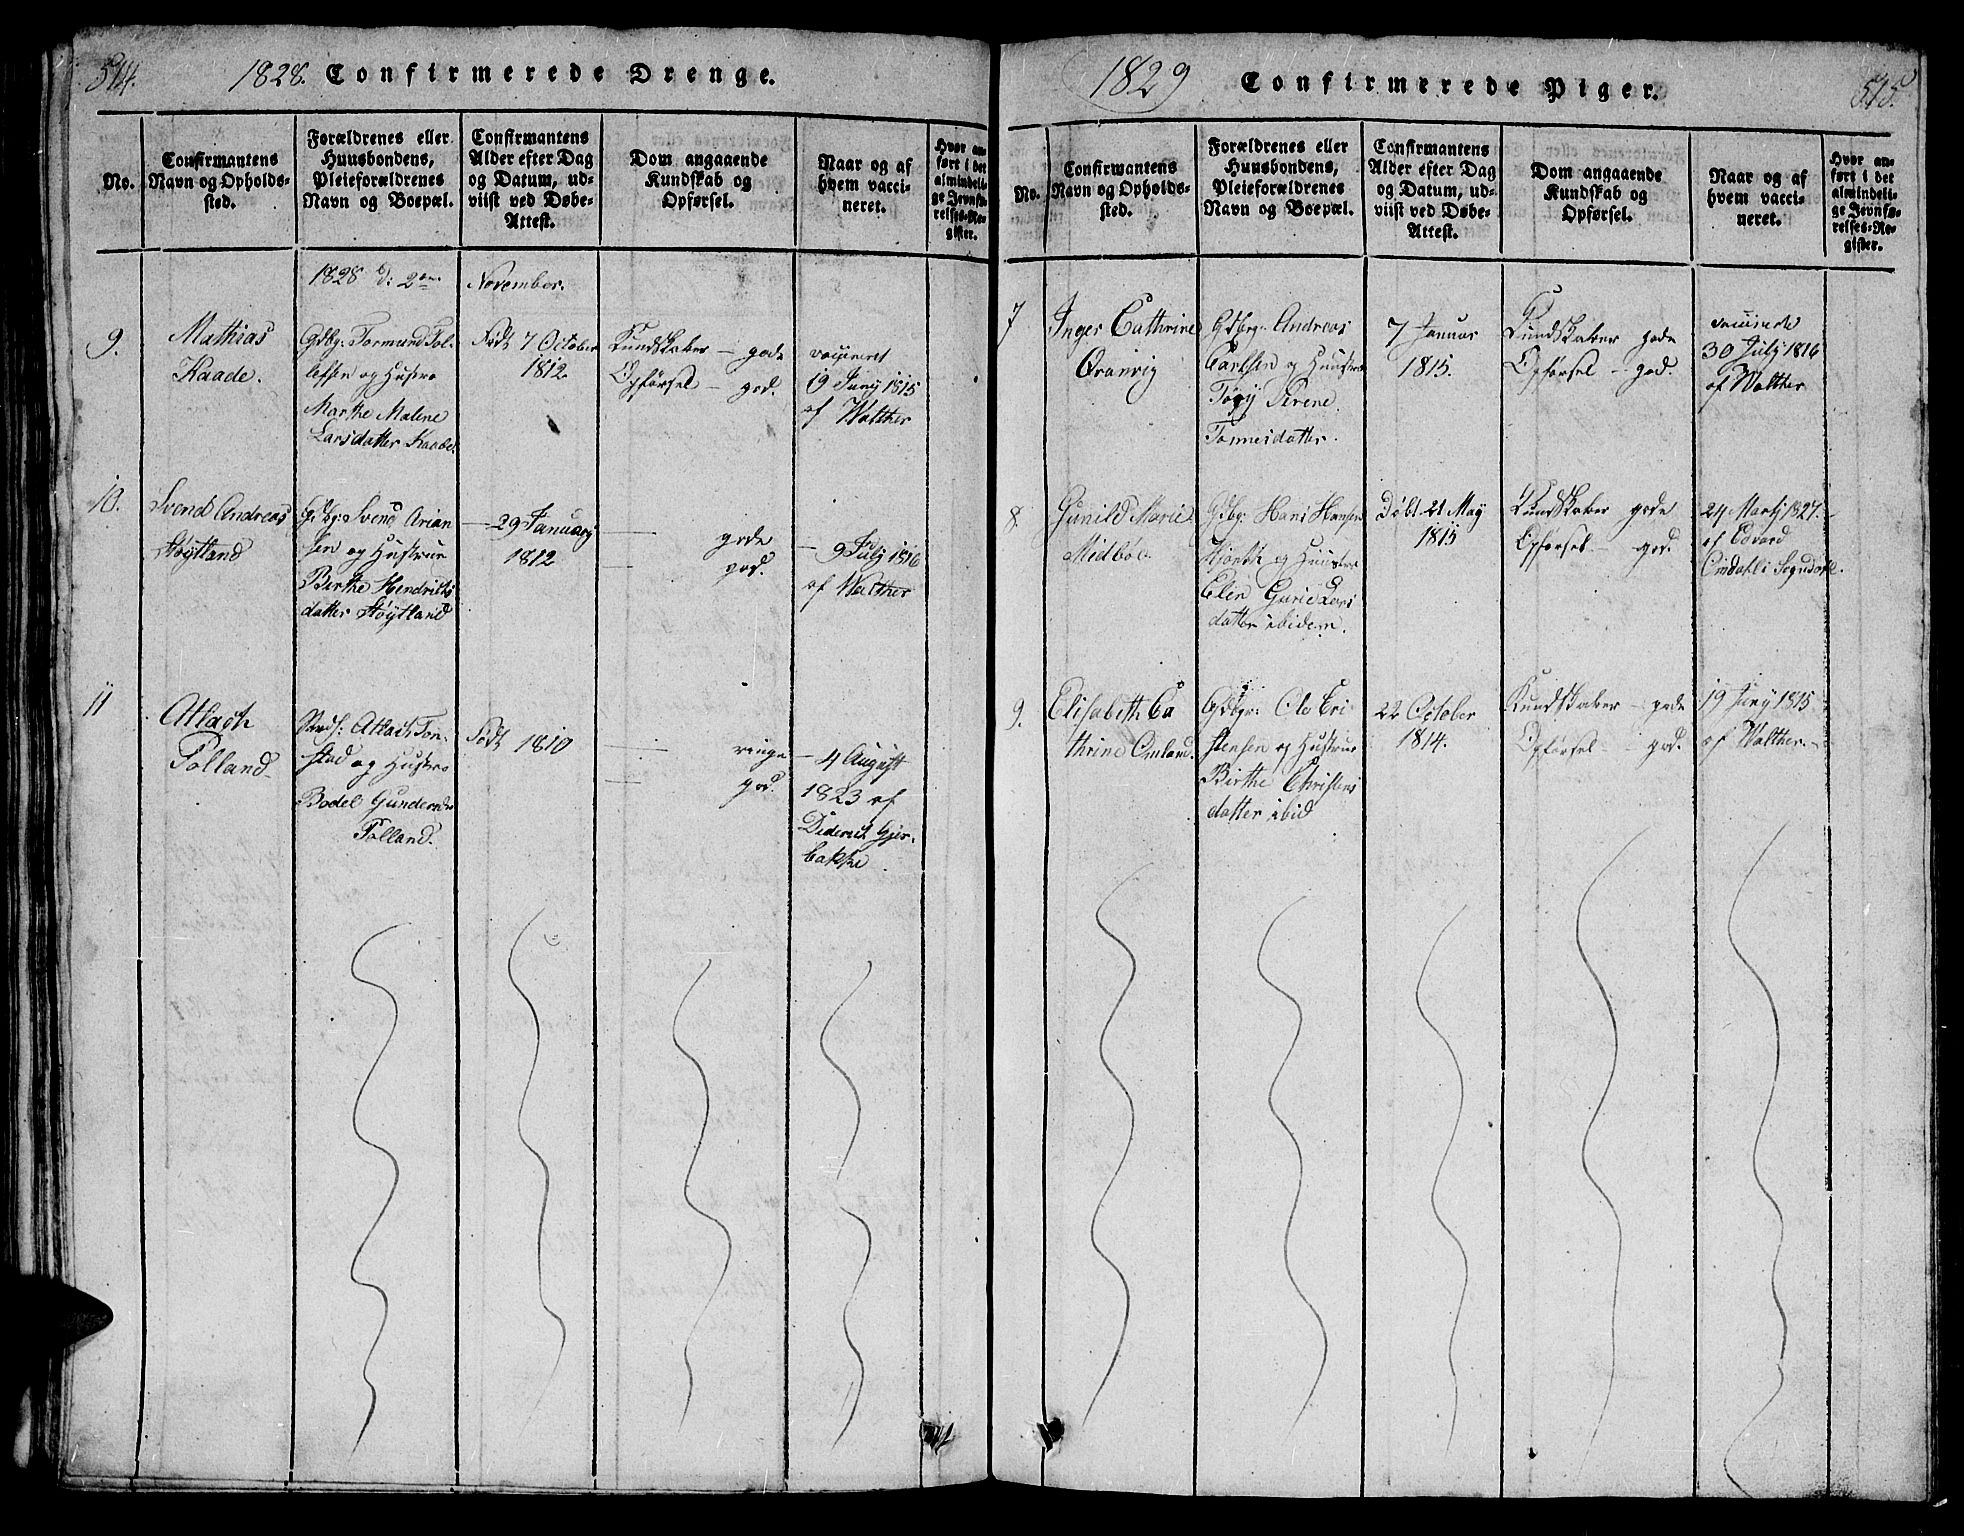 514.
1828. Confirmerede Drenge.
No.
Confirmantens
Navn og Opholds-
sted.
Forældrenes eller
Huusbondens,
Pleieforældrenes
Navn og Boepæl.
Confirmantens
Alder efter Dag
og Datum, ud-
viist ved Døbe-
Attest.
Dom angaaende
Kundskab og
Opførsel.
Naar og af
hvem vacci-
neret.
Hvor an-
ført i det
almindeli-
ge Jevnfø-
relses-Re-
gister.
1828 d: 2den November.
9.
Mathias
Kaade.
Gdbg: Tormund Tol-
lefsen og Hustro
Marthe Malene
Larsdatter Kaade.
Født 7 October
1812.
Kundskaber - gode
Opførsel - god.
vaccineret
19 Juny 1815
af Walther
10.
Svend Andreas
Høytland
Gdbg: Svend Arian
sen og Hustrue
Birthe Hendrichs
datter Høytland
- 29 January
1812
gode
god.
- 9 July 1816
af Walther
11
Atlach
Tolland
Atlach Ton-
stad og Hustro
Bodel Gunders
Tolland.
Født 1810
ringe
god.
- 4 August
1823 af
Diderich Gjer-
bakke
1829 Confirmerede Piger.
515.
No.
Confirmantens
Navn og Opholds-
sted.
Forældrenes eller
Huusbondens,
Pleieforældrenes
Navn og Boepæl.
Confirmantens
Alder efter Dag
og Datum, ud-
viist ved Døbe-
Attest.
Dom angaaende
Kundskab og
Opførsel.
Naar og af
hvem vacci-
neret.
Hvor an-
ført i det
almindeli-
ge Jevnfø-
relses-Re-
gister.
7
Inger Cathrine
Qvanvig
Gdbrg: Andreas
Carlsen og Huustro
Serene
Tønnesdatter.
7 Januar
1815.
Kundskaber gode
Opførsel - god.
30 July 1816
af Walther
8
Gunild Marie
Midbøe
Gdbg: Hans Hansen
og Huustro
Elen Gurie Lars
datter ibidem.
Døbt 21 May
1815
Kundskaber gode
Opførsel - god.
24 Martj 1827.
af Edvard
Omdahl i Sogndahl.
9.
Elisabeth Ca
thrine Omland.
Gdbgr: Ole Cri
stensen og Hustrue
Birthe Christens
datter ibid
22 October
1814.
Kundskaber - gode
Opførsel - god.
19 Juny 1815
af Walther.